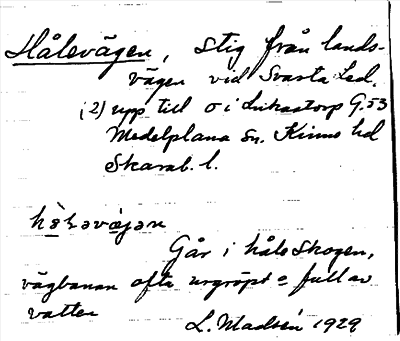 Hålevägen, stig från lands-
vägen vid Svarta Led,
(2) upp till o i Lukastorp G.53
Medelplana Sn. Kinne hd
Skarab. l.
Går i håle Skogen,
vägbanan ofta urgröpt o full av
vatten
L. Madsén 1929